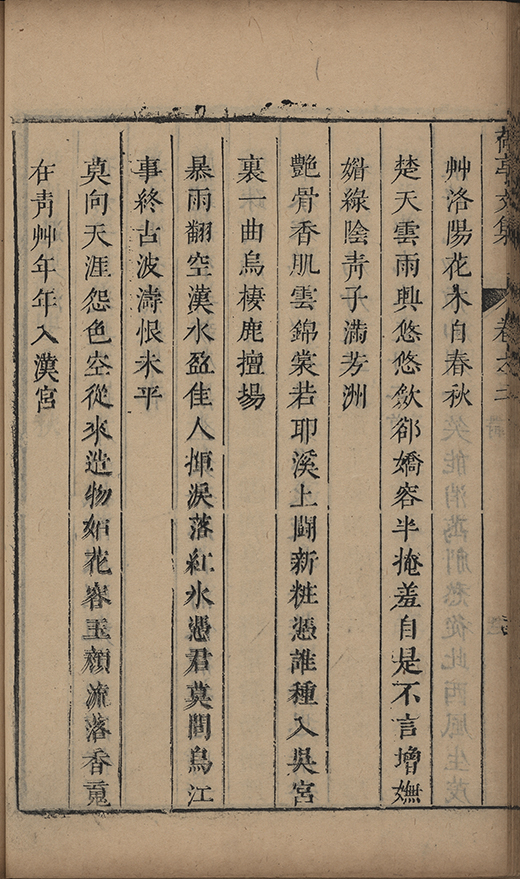 荷亭文集 卷之二
艸洛陽花木自春秋
楚天雲雨興悠悠斂卻嬌容半掩羞自是不言增嫵
媚綠陰靑子滿芳洲
艷骨香肌雲錦裳若耶溪上鬪新粧憑誰種入吳宮
裏一曲烏棲鹿擅場
暴雨翻空漢水盈佳人揮淚落紅冰憑君莫問烏江
事終古波濤恨未平
莫向天涯怨色空從來造物妬花容玉顏流落香䰟
在靑艸年年入漢宮